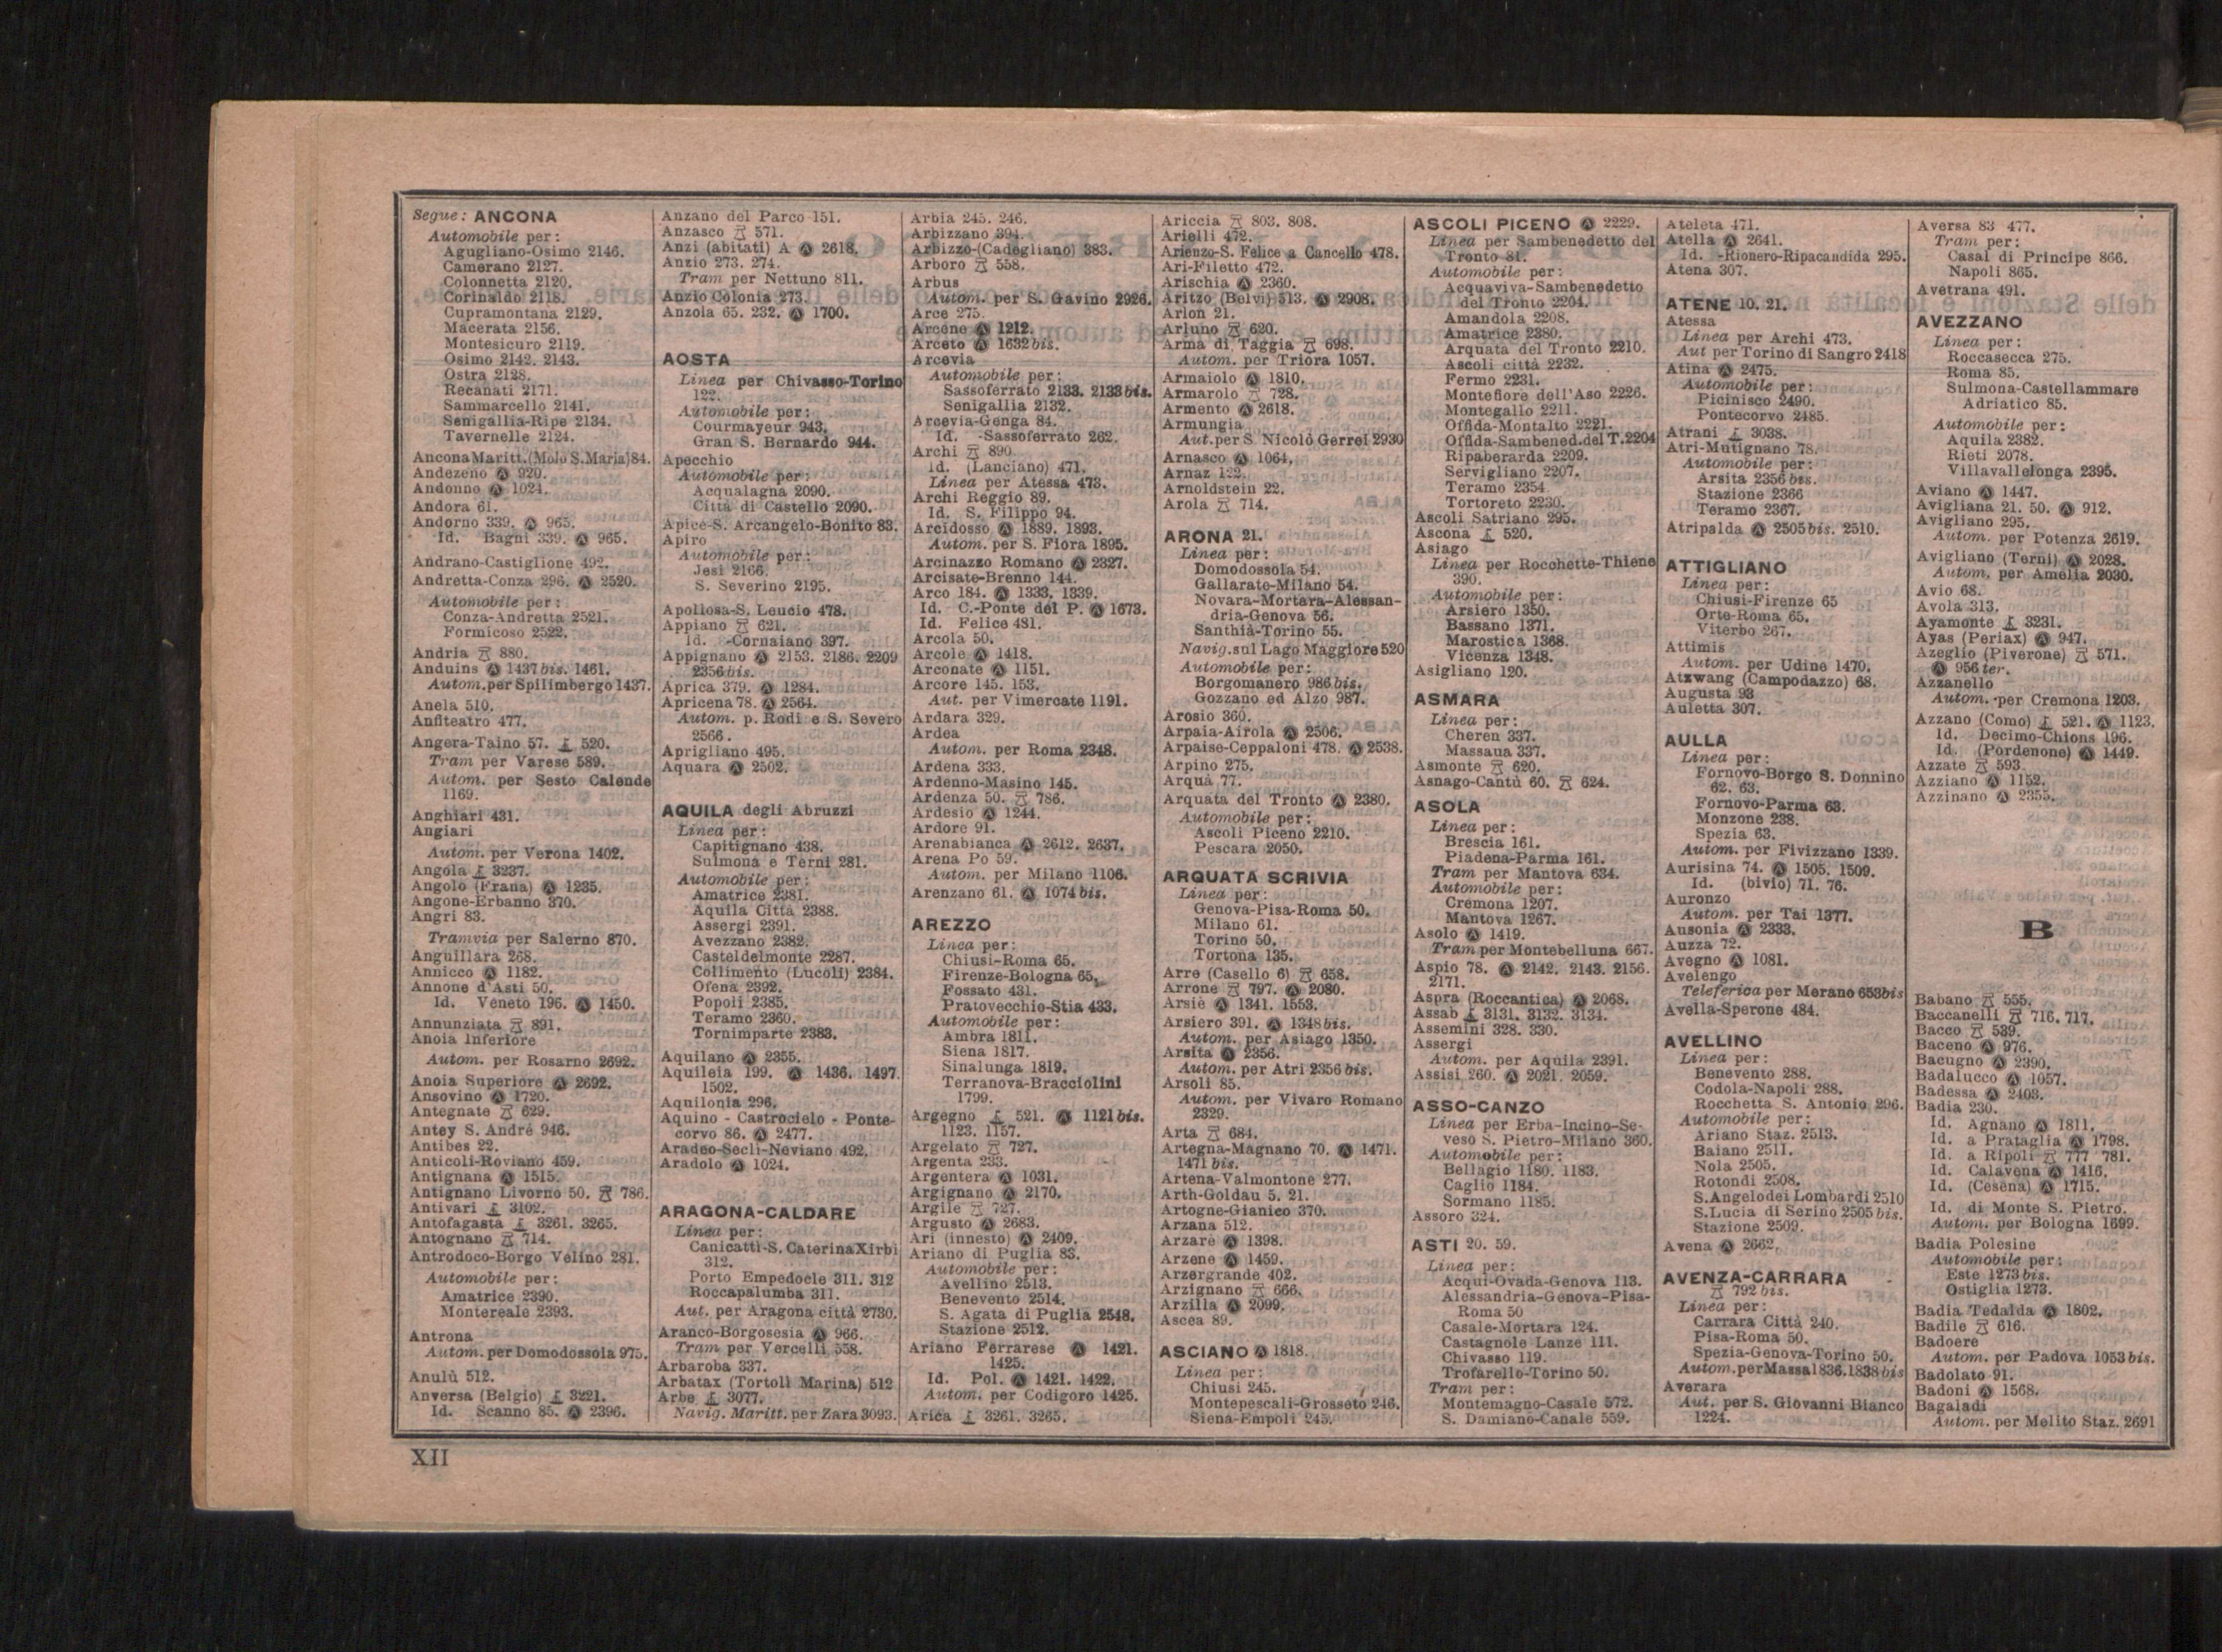 Segue: ANCONA
Automobile per:
Agugliano-Osimo 2146.
Camerano 2127.
Colonnetta 2120.
Corinaldo 2118.
Cupramontana 2129.
Macerata 2156.
Montesicuro 2119.
Osimo 2142. 2143.
Ostra 2128.
Recanati 2171.
Sammarcello 2141.
Senigallia-Ripe 2134.
Tavernelle 2124.
Ancona Maritt. (Molo S. Maria) 84.
Andezeno Ⓐ 920.
Andonno Ⓐ 1024.
Andora 61.
Andorno 339. Ⓐ 965.
Id. Bagni 339. Ⓐ 965.
Andrano-Castiglione 492.
Andretta-Conza 296. Ⓐ 2520.
Automobile per:
Conza-Andretta 2521.
Formicoso 2522.
Andria 880.
Anduins Ⓐ 1437 bis. 1461.
Autom. per Spilimbergo 1437.
Anela 510.
Anfiteatro 477.
Angera-Taino 57. 520.
Tram per Varese 589.
Autom. per Sesto Calende
1169.
Anghiari 431.
Angiari
Autom. per Verona 1402.
Angola 3237.
Angolo (Frana) Ⓐ 1235.
Angone-Erbanno 370.
Angri 83.
Tramvia per Salerno 870.
Anguillara 268.
Annicco Ⓐ 1182.
Annone d'Asti 50.
Id. Veneto 196. Ⓐ 1450.
Annunziata 891.
Anoia Inferiore
Autom. per Rosarno 2692.
Anoia Superiore Ⓐ 2692.
Ansovino Ⓐ 1720.
Antegnate 629.
Antey S. André 946.
Antibes 22.
Anticoli-Roviano 459.
Antignana Ⓐ 1515.
Antignano Livorno 50. 786.
Antivari 3102.
Antofagasta 3261. 3265.
Antognano 714.
Antrodoco-Borgo Velino 281.
Automobile per:
Amatrice 2390.
Montereale 2393.
Antrona
Autom. per Domodossola 975.
Anulù 512.
Anversa (Belgio) 3221.
Id. Scanno 85. Ⓐ 2396.
Anzano del Parco 151.
Anzasco 571.
Anzi (abitati) A Ⓐ 2618.
Anzio 273. 274.
Tram per Nettuno 811.
Anzio Colonia 273.
Anzola 65. 232. Ⓐ 1700.
AOSTA
Linea per Chivasso-Torino
122.
Automobile per:
Courmayeur 943.
Gran S. Bernardo 944.
Apecchio
Automobile per:
Acqualagna 2090.
Città di Castello 2090.
Apice-S. Arcangelo-Bonito 83.
Apiro
Automobile per:
Jesi 2166.
S. Severino 2195.
Apollosa-S. Leucio 478.
Appiano 621.
Id. -Cornaiano 397.
Appignano Ⓐ 2153. 2186. 2209
2356 bis.
Aprica 379. Ⓐ 1284.
Apricena 78. Ⓐ 2564.
Autom. p. Rodi e S. Severo
2566.
Aprigliano 495.
Aquara Ⓐ 2502.
AQUILA degli Abruzzi
Linea per:
Capitignano 438.
Sulmona e Terni 281.
Automobile per:
Amatrice 2381.
Aquila Città 2388.
Assergi 2391.
Avezzano 2382.
Casteldelmonte 2287.
Collimento (Lucoli) 2384.
Ofena 2392.
Popoli 2385.
Teramo 2360.
Tornimparte 2383.
Aquilano Ⓐ 2355.
Aquileia 199. Ⓐ 1436. 1497.
1502.
Aquilonia 296.
Aquino - Castrocielo - Ponte-
corvo 86. Ⓐ 2477.
Aradeo-Secli-Neviano 492.
Aradolo Ⓐ 1024.
ARAGONA-CALDARE
Linea per:
Canicatti-S. Caterina Xirbi
312.
Porto Empedocle 311. 312
Roccapalumba 311.
Aut. per Aragona città 2730.
Aranco-Borgosesia Ⓐ 966.
Tram per Vercelli 558.
Arbaroba 337.
Arbatax (Tortolì Marina) 512
Arbe 3077.
Navig. Maritt. per Zara 3093.
Arbia 245. 246.
Arbizzano 394.
Arbizzo-(Cadegliano) 383.
Arboro 558.
Arbus
Autom. per S. Gavino 2926.
Arce 275.
Arcene Ⓐ 1212.
Arceto Ⓐ 1632 bis.
Arcevia
Automobile per:
Sassoferrato 2133. 2133 bis.
Senigallia 2132.
Arcevia-Genga 84.
Id. -Sassoferrato 262.
Archi 890
Id. (Lanciano) 471.
Linea per Atessa 473.
Archi Reggio 89.
Id. S. Filippo 94.
Arcidosso Ⓐ 1889. 1893.
Autom. per S. Fiora 1895.
Arcinazzo Romano Ⓐ 2327.
Arcisate-Brenno 144.
Arco 184. Ⓐ 1333. 1339.
Id. C.-Ponte del P. Ⓐ 1673.
Id. Felice 481.
Arcola 50.
Arcole Ⓐ 1418.
Arconate Ⓐ 1151.
Arcore 145. 153.
Aut. per Vimercate 1191.
Ardara 329.
Ardea
Autom. per Roma 2348.
Ardena 333.
Ardenno-Masino 145.
Ardenza 50. 786.
Ardesio Ⓐ 1244.
Ardore 91.
Arenabianca Ⓐ 2612. 2637.
Arena Po 59.
Autom. per Milano 1106.
Arenzano 61. Ⓐ 1074 bis.
AREZZO
Linea per:
Chiusi-Roma 65.
Firenze-Bologna 65.
Fossato 431.
Pratovecchio-Stia 433.
Automobile per:
Ambra 1811.
Siena 1817.
Sinalunga 1819.
Terranova-Bracciolini
1799.
Argegno 521. Ⓐ 1121 bis.
1123. 1157.
Argelato 727.
Argenta 233.
Argentera Ⓐ 1031.
Argignano Ⓐ 2170.
Argile 727.
Argusto Ⓐ 2683.
Ari (innesto) Ⓐ 2409.
Ariano di Puglia 83.
Automobile per:
Avellino 2513.
Benevento 2514.
S. Agata di Puglia 2548.
Stazione 2512.
Ariano Ferrarese Ⓐ 1421.
1425.
Id. Pol. Ⓐ 1421. 1422.
Autom. per Codigoro 1425.
Arica 3261. 3265.
Ariccia 803. 808.
Arielli 472.
Arienzo-S. Felice a Cancello 478.
Ari-Filetto 472.
Arischia Ⓐ 2360.
Aritzo (Belvì) 513. Ⓐ 2908.
Arlon 21.
Arluno 620.
Arma di Taggia 698.
Autom. per Triora 1057.
Armaiolo Ⓐ 1810.
Armarolo 728.
Armento Ⓐ 2618.
Armungia
Aut. per S. Nicolò Gerrei 2930
Arnasco Ⓐ 1064.
Arnaz 122.
Arnoldstein 22.
Arola 714.
ARONA 21.
Linea per:
Domodossola 54.
Gallarate-Milano 54.
Novara-Mortara-Alessan-
dria-Genova 56.
Santhià-Torino 55.
Navig. sul Lago Maggiore 520
Automobile per:
Borgomanero 986 bis.
Gozzano ed Alzo 987.
Arosio 360.
Arpaia-Airola Ⓐ 2506.
Arpaise-Ceppaloni 478. Ⓐ 2538.
Arpino 275.
Arquà 77.
Arquata del Tronto Ⓐ 2380.
Automobile per:
Ascoli Piceno 2210.
Pescara 2050.
ARQUATA SCRIVIA
Linea per:
Genova-Pisa-Roma 50.
Milano 61.
Torino 50.
Tortona 135.
Arre (Casello 6) 658.
Arrone 797. Ⓐ 2080.
Arsiè Ⓐ 1341. 1553.
Arsiero 391. Ⓐ 1348 bis.
Autom. per Asiago 1350.
Arsita Ⓐ 2356.
Autom. per Atri 2356 bis.
Arsoli 85.
Autom. per Vivaro Romano
2329.
Arta 684.
Artegna-Magnano 70. Ⓐ 1471.
1471 bis.
Artena-Valmontone 277.
Arth-Goldau 5. 21.
Artogne-Gianico 370.
Arzana 512.
Arzarè Ⓐ 1398.
Arzene Ⓐ 1459.
Arzergrande 402.
Arzignano 666.
Arzilla Ⓐ 2099.
Ascea 89.
ASCIANO Ⓐ 1818.
Linea per:
Chiusi 245.
Montepescali-Grosseto 246.
Siena-Empoli 245.
ASCOLI PICENO Ⓐ 2229.
Linea per Sambenedetto del
Tronto 81.
Automobile per:
Acquaviva-Sambenedetto
del Tronto 2204.
Amandola 2208.
Amatrice 2380.
Arquata del Tronto 2210.
Ascoli città 2232.
Fermo 2231.
Montefiore dell'Aso 2226.
Montegallo 2211.
Offida-Montalto 2221.
Offida-Sambened. del T. 2204
Ripaberarda 2209.
Servigliano 2207.
Teramo 2354
Tortoreto 2230.
Ascoli Satriano 295.
Ascona 520.
Asiago
Linea per Rocchette-Thiene
390.
Automobile per:
Arsiero 1350.
Bassano 1371.
Marostica 1368.
Vicenza 1348.
Asigliano 120.
ASMARA
Linea per:
Cheren 337.
Massaua 337.
Asmonte 620.
Asnago-Cantù 60. 624.
ASOLA
Linea per:
Brescia 161.
Piadena-Parma 161.
Tram per Mantova 634.
Automobile per:
Cremona 1207.
Mantova 1267.
Asolo Ⓐ 1419.
Tram per Montebelluna 667.
Aspio 78. Ⓐ 2142. 2143. 2156.
2171.
Aspra (Roccantica) Ⓐ 2068.
Assab 3131. 3132. 3134.
Assemini 328. 330.
Assergi
Autom. per Aquila 2391.
Assisi 260. Ⓐ 2021. 2059.
ASSO-CANZO
Linea per Erba-Incino-Se-
veso S. Pietro-Milano 360.
Automobile per:
Bellagio 1180. 1183.
Caglio 1184.
Sormano 1185.
Assoro 324.
ASTI 20. 59.
Linea per:
Acqui-Ovada-Genova 113.
Alessandria-Genova-Pisa-
Roma 50
Casale-Mortara 124.
Castagnole Lanze 111.
Chivasso 119.
Trofarello-Torino 50.
Tram per:
Montemagno-Casale 572.
S. Damiano-Canale 559.
Ateleta 471.
Atella Ⓐ 2641.
Id. -Rionero-Ripacandida 295.
Atena 307.
ATENE 10. 21.
Atessa
Linea per Archi 473.
Aut per Torino di Sangro 2418
Atina Ⓐ 2475.
Automobile per:
Picinisco 2490.
Pontecorvo 2485.
Atrani 3038.
Atri-Mutignano 78.
Automobile per:
Arsita 2356 bis.
Stazione 2366
Teramo 2367.
Atripalda Ⓐ 2505 bis. 2510.
ATTIGLIANO
Linea per:
Chiusi-Firenze 65
Orte-Roma 65.
Viterbo 267.
Attimis
Autom. per Udine 1470.
Atzwang (Campodazzo) 68.
Augusta 93
Auletta 307.
AULLA
Linea per:
Fornovo-Borgo S. Donnino
62. 63.
Fornovo-Parma 63.
Monzone 238.
Spezia 63.
Autom. per Fivizzano 1339.
Aurisina 74. Ⓐ 1505. 1509.
Id. (bivio) 71. 76.
Auronzo
Autom. per Tai 1377.
Ausonia Ⓐ 2333.
Auzza 72.
Avegno Ⓐ 1081.
Avelengo
Teleferica per Merano 653 bis
Avella-Sperone 484.
AVELLINO
Linea per:
Benevento 288.
Codola-Napoli 288.
Rocchetta S. Antonio 296.
Automobile per:
Ariano Staz. 2513.
Baiano 2511.
Nola 2505.
Rotondi 2508.
S. Angelo dei Lombardi 2510
S. Lucia di Serino 2505 bis.
Stazione 2509.
Avena Ⓐ 2662.
AVENZA-CARRARA
792 bis.
Linea per:
Carrara Città 240.
Pisa-Roma 50.
Spezia-Genova-Torino 50.
Autom. per Massa 1836. 1838 bis
Averara
Aut. per S. Giovanni Bianco
1224.
Aversa 83 477.
Tram per:
Casal di Principe 866.
Napoli 865.
Avetrana 491.
AVEZZANO
Linea per:
Roccasecca 275.
Roma 85.
Sulmona-Castellammare
Adriatico 85.
Automobile per:
Aquila 2382.
Rieti 2078.
Villavallelonga 2395.
Aviano Ⓐ 1447.
Avigliana 21. 50. Ⓐ 912.
Avigliano 295.
Autom. per Potenza 2619.
Avigliano (Terni) Ⓐ 2028.
Autom. per Amelia 2030.
Avio 68.
Avola 313.
Ayamonte 3231.
Ayas (Periax) Ⓐ 947.
Azeglio (Piverone) 571.
Ⓐ 956 ter.
Azzanello
Autom. per Cremona 1203.
Azzano (Como) 521. Ⓐ 1123.
Id. Decimo-Chions 196.
Id. (Pordenone) Ⓐ 1449.
Azzate 593.
Azziano Ⓐ 1152.
Azzinano Ⓐ 2355.
B
Babano 555.
Baccanelli 716. 717.
Bacco 539.
Baceno Ⓐ 976.
Bacugno Ⓐ 2390.
Badalucco Ⓐ 1057.
Badessa Ⓐ 2403.
Badia 230.
Id. Agnano Ⓐ 1811.
Id. a Prataglia Ⓐ 1798.
Id. a Ripoli 777 781.
Id. Calavena Ⓐ 1416.
Id. (Cesena) Ⓐ 1715.
Id. di Monte S. Pietro.
Autom. per Bologna 1699.
Badia Polesine
Automobile per:
Este 1273 bis.
Ostiglia 1273.
Badia Tedalda Ⓐ 1802.
Badile 616.
Badoere
Autom. per Padova 1053 bis.
Badolato 91.
Badoni Ⓐ 1568.
Bagaladi
Autom. per Melito Staz. 2691
XII